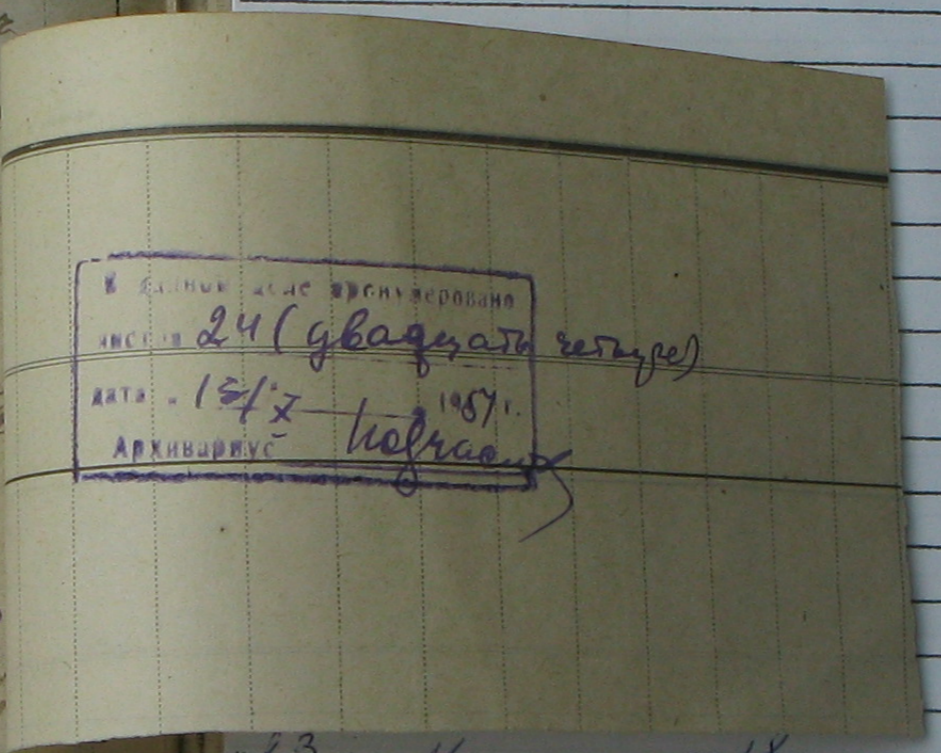 В данном деле пронумеровано
листов 24 (двадцать четыре)
дата " 15/X 1951 г.
Архивариус